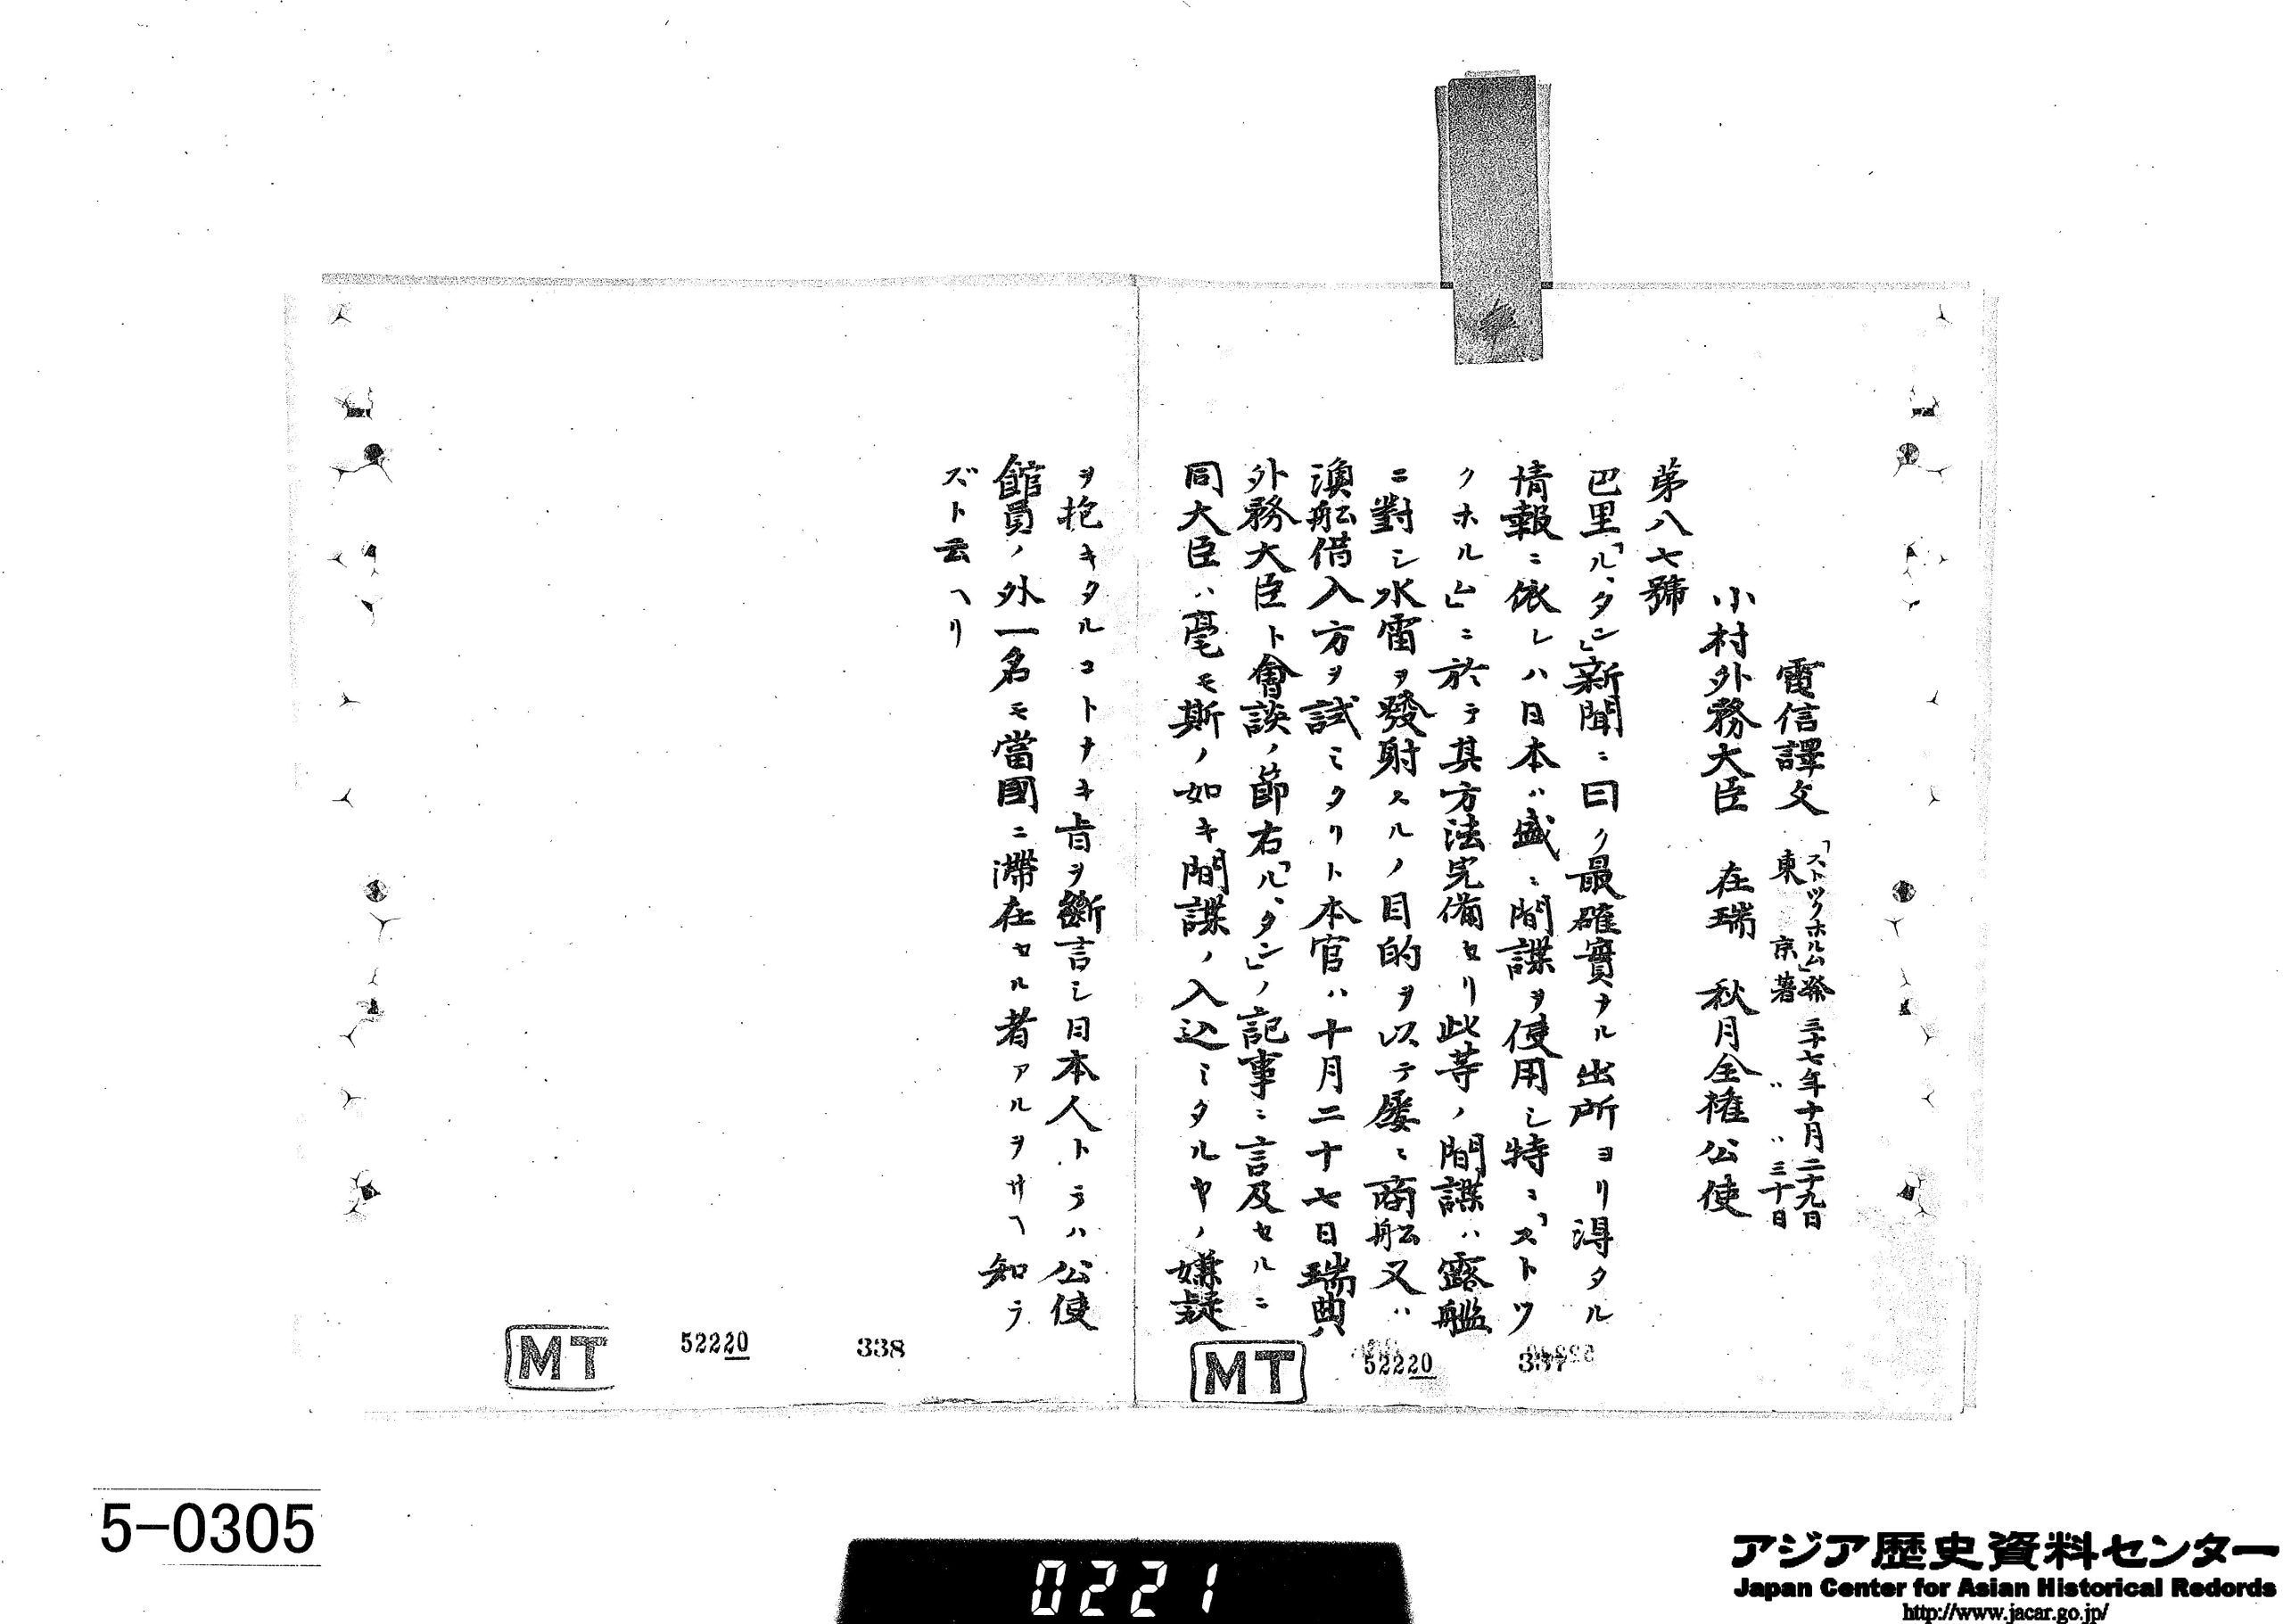 電信譯文 「ストックホルム」發 三十七年十月二十九日
東京著 〃 〃 三十日
小村外務大臣 在瑞 秋月全権公使
第八七號
巴里「ル、タン」新聞ニ曰ク最確實ナル出所ヨリ得タル
情報ニ依レハ日本ハ盛ニ間諜ヲ使用シ特ニ「ストツ
クホルム」ニ於テ其方法完備セリ此等ノ間諜ハ露艦
ニ對シ水雷ヲ發射スルノ目的ヲ以テ屡ニ商舩又ハ
漁舩借入方ヲ試ミタリト本官ハ十月二十七日瑞典
外務大臣ト會談ノ節右「ル、タン」ノ記事ニ言及セルニ
同大臣ハ毫モ斯ノ如キ間諜ノ入込ミタルヤノ嫌疑
ヲ抱キタルコトナキ旨ヲ斷言シ日本人トテハ公使
館員ノ外一名モ當國ニ滯在セル者アルヲサヘ知ラ
ズト云ヘリ
MT 52220 337
MT 52220 338
5-0305
0221
アジア歴史資料センター
Japan Center for Asian Historical Records
http://www.jacar.go.jp/